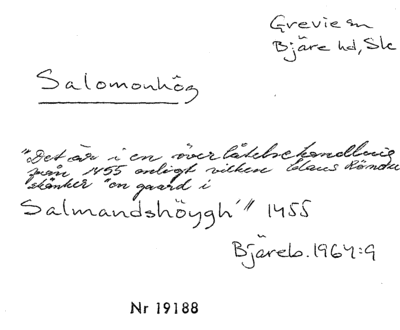 Grevie sn
Bjäre hd, Sk
Salomonhög
"Det är i en överlåtelsehandling
från 1455 enligt vilken Claus Röndu
skänker "en gaard i
Salmandshöygh'" 1455
Bjäreb. 1964:9
Nr 19188